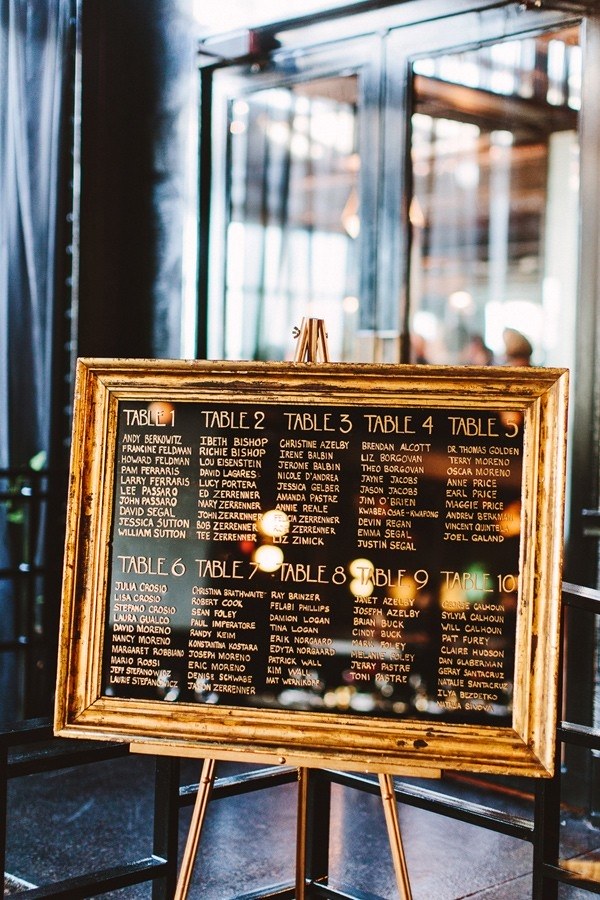 TABLE 1
ANDY BERKOWITZ
FRANCINE FELDMAN
HOWARD FELDMAN
PAM FERRARIS
LARRY FERRARIS
LEE PASSARO
JOHN PASSARO
DAVID SEGAL
JESSICA SUTTON
WILLIAM SUTTON
TABLE 2
IBETH BISHOP
RICHIE BISHOP
LOU EISENSTEIN
DAVID LAGARES
LUCY PORTERA
ED ZERRENNER
MARY ZERRENNER
JOHN ZERRENNER
BOB ZERRENNER
TEE ZERRENNER
TABLE 3
CHRISTINE AZELBY
IRENE BALBIN
JEROME BALBIN
NICOLE D'ANDREA
JESSICA GELBER
AMANDA PASTRE
REALE
ZERRENNER
LIZ ZIMICK
TABLE 4
BRENDAN ALCOTT
LIZ BORGOVAN
THEO BORGOVAN
JAYNE JACOBS
JASON JACOBS
JIM O'BRIEN
KWABEA OSAE-KWAPONG
DEVIN REGAN
EMMA SEGAL
JUSTIN SEGAL
TABLE 5
DR THOMAS GOLDEN
TERRY MORENO
OSCAR MORENO
ANNE PRICE
EARL PRICE
MAGGIE PRICE
ANDREW BERKMAN
VINCENT QUINTE
JOEL GALAND
TABLE 6
JULIA CROSIO
LISA CROSIO
STEFANO CROSIO
LAURA GUALCO
DAVID MORENO
NANCY MORENO
MARGARET ROBBIANO
MARIO ROSSI
JEFF STEFANOWICZ
LAURIE STEFANOWICZ
TABLE 7
CHRISTINA BRATHWAITE
ROBERT COOK
SEAN FOLEY
PAUL IMPERATORE
RANDY KEIM
KONSTANTINA KOSTARA
JOSEPH MORENO
ERIC MORENO
DENISE SCHWABE
JASON ZERRENNER
TABLE 8
RAY BRINZER
PELABI PHILLIPS
DAMION LOGAN
TINA LOGAN
ERIK NORGAARD
EDYTA NORGAARD
PATRICK WALL
KIM WALL
MAT WERNIKOFF
TABLE 9
JANET AZELBY
JOSEPH AZELBY
BRIAN BUCK
CINDY BUCK
MARK FOLEY
MELANIE FOLEY
JERRY PASTRE
TONI PASTRE
TABLE 10
GEORGE CALHOUN
SYLVIA CALHOUN
WILL CALHOUN
PAT FUREY
CLAIRE HUDSON
DAN GLABERMAN
GERRY SANTACRUZ
NATALIE SANTACRUZ
ILYA BEZDETKO
NATALIA SINOVA